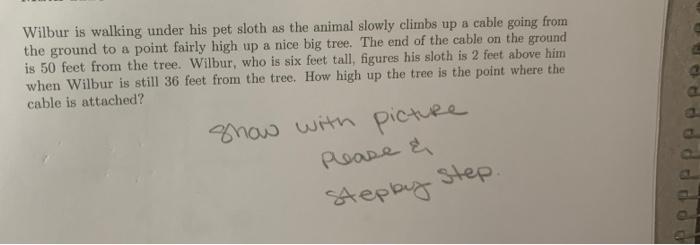 Wilbur is walking under his pet sloth as the animal slowly climbs up a cable going from
the ground to a point fairly high up a nice big tree. The end of the cable on the ground
is 50 feet from the tree. Wilbur, who is six feet tall, figures his sloth is 2 feet above him
when Wilbur is still 36 feet from the tree. How high up the tree is the point where the
cable is attached?
show with picture
please &
step by step.